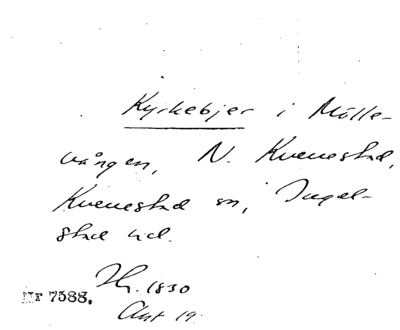 Kyrkebjer i Mölle-
vången, N. Kvenestad,
Kvenestad sn, Ingel-
stad hd.
Hr. 1830
Nr 7588.
Akt 19